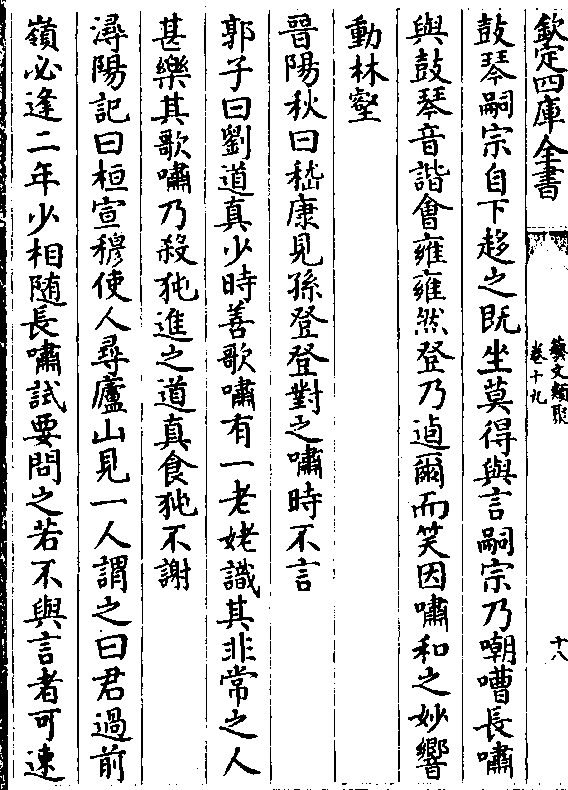 欽定四庫全書
藝文類聚
卷十九
十八
鼓琴嗣宗自下趍之既坐莫得與言嗣宗乃嘲嘈長嘯
與鼓琴音諧會雍雍然登乃逌爾而笑因嘯和之妙響
動林壑
晉陽秋曰嵇康見孫登登對之嘯時不言
郭子曰劉道真少時善歌嘯有一老姥識其非常之人
甚樂其歌嘯乃殺㹠進之道真食㹠不謝
潯陽記曰桓宣穆使人尋廬山見一人謂之曰君過前
嶺必逢二年少相随長嘯試要問之若不與言者可速